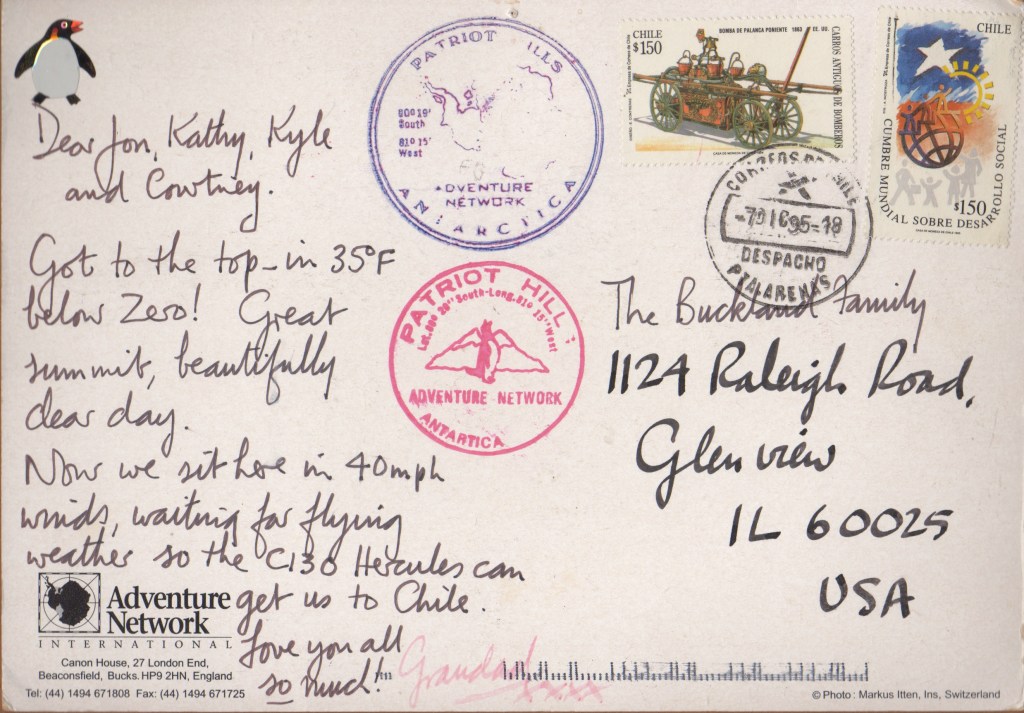 Dear Jon, Kathy, Kyle
and Cowtney.
Got to the top - in 35°F
below Zero! Great
summit, beautifully
clear day.
Now we sit here in 40mph
winds, waiting for flying
weather so the C130 Hercules can
get us to Chile.
Love you all
so much!
Grandad
xxxx
Adventure
Network
INTERNATIONAL
Canon House, 27 London End,
Beaconsfield, Bucks. HP9 2HN, England
Tel: (44) 1494 671808 Fax: (44) 1494 671725
PATRIOT ILLS
80°19'
South
81°15'
West
ADVENTURE
NETWORK
ANTARCTICA
PATRIOT HILL
South-Long. 81° 15" West
ADVENTURE NETWORK
ANTARTICA
CHILE
$150
BOMBA DE PALANCA PONIENTE 1863 EE. UU.
CARROS ANTIGUOS DE BOMBEROS
CHILE
CUMBRE MUNDIAL SOBRE DESARROLLO SOCIAL
$150
CORREOS DE CHILE
-7 DIC 95-18
DESPACHO
PTA. ARENAS
The Buckland Family
1124 Raleigh Road,
Glenview
IL 60025
USA
© Photo : Markus Itten, Ins, Switzerland